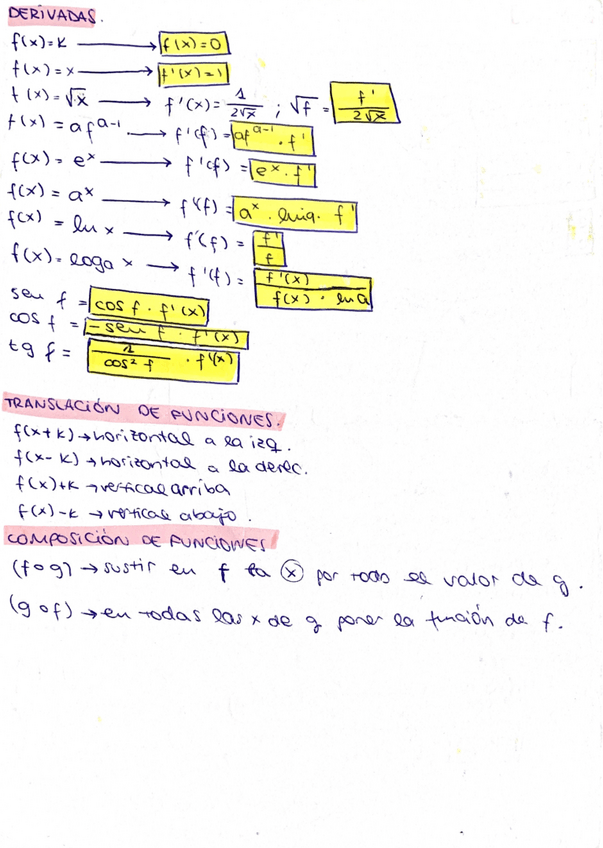 DERIVADAS.
f(x)=K → f(x)=0
f(x)=x → f'(x)=1
f(x)=√x → f'(x)=1/2√x ; √f = f'/2√x
f(x)=af^a-1 → f'(f)=af^a-1 · f'
f(x)=e^x → f'(f)=e^x · f'
f(x)=a^x → f'(f)=a^x · lna · f'
f(x)=ln x → f'(f)=f'/f
f(x)=loga x → f'(f)=f'(x)/f(x) · ln a
sen f = cos f · f'(x)
cos f = -sen f · f'(x)
tg f = 1/cos² f · f'(x)
TRANSLACIÓN DE FUNCIONES.
f(x+k) → horizontal a la izq.
f(x-k) → horizontal a la derec.
f(x)+k → vertical arriba
f(x)-k → vertical abajo.
COMPOSICIÓN DE FUNCIONES
(f∘g) → sustir en f la x por todo el valor de g.
(g∘f) → en todas las x de g poner la función de f.